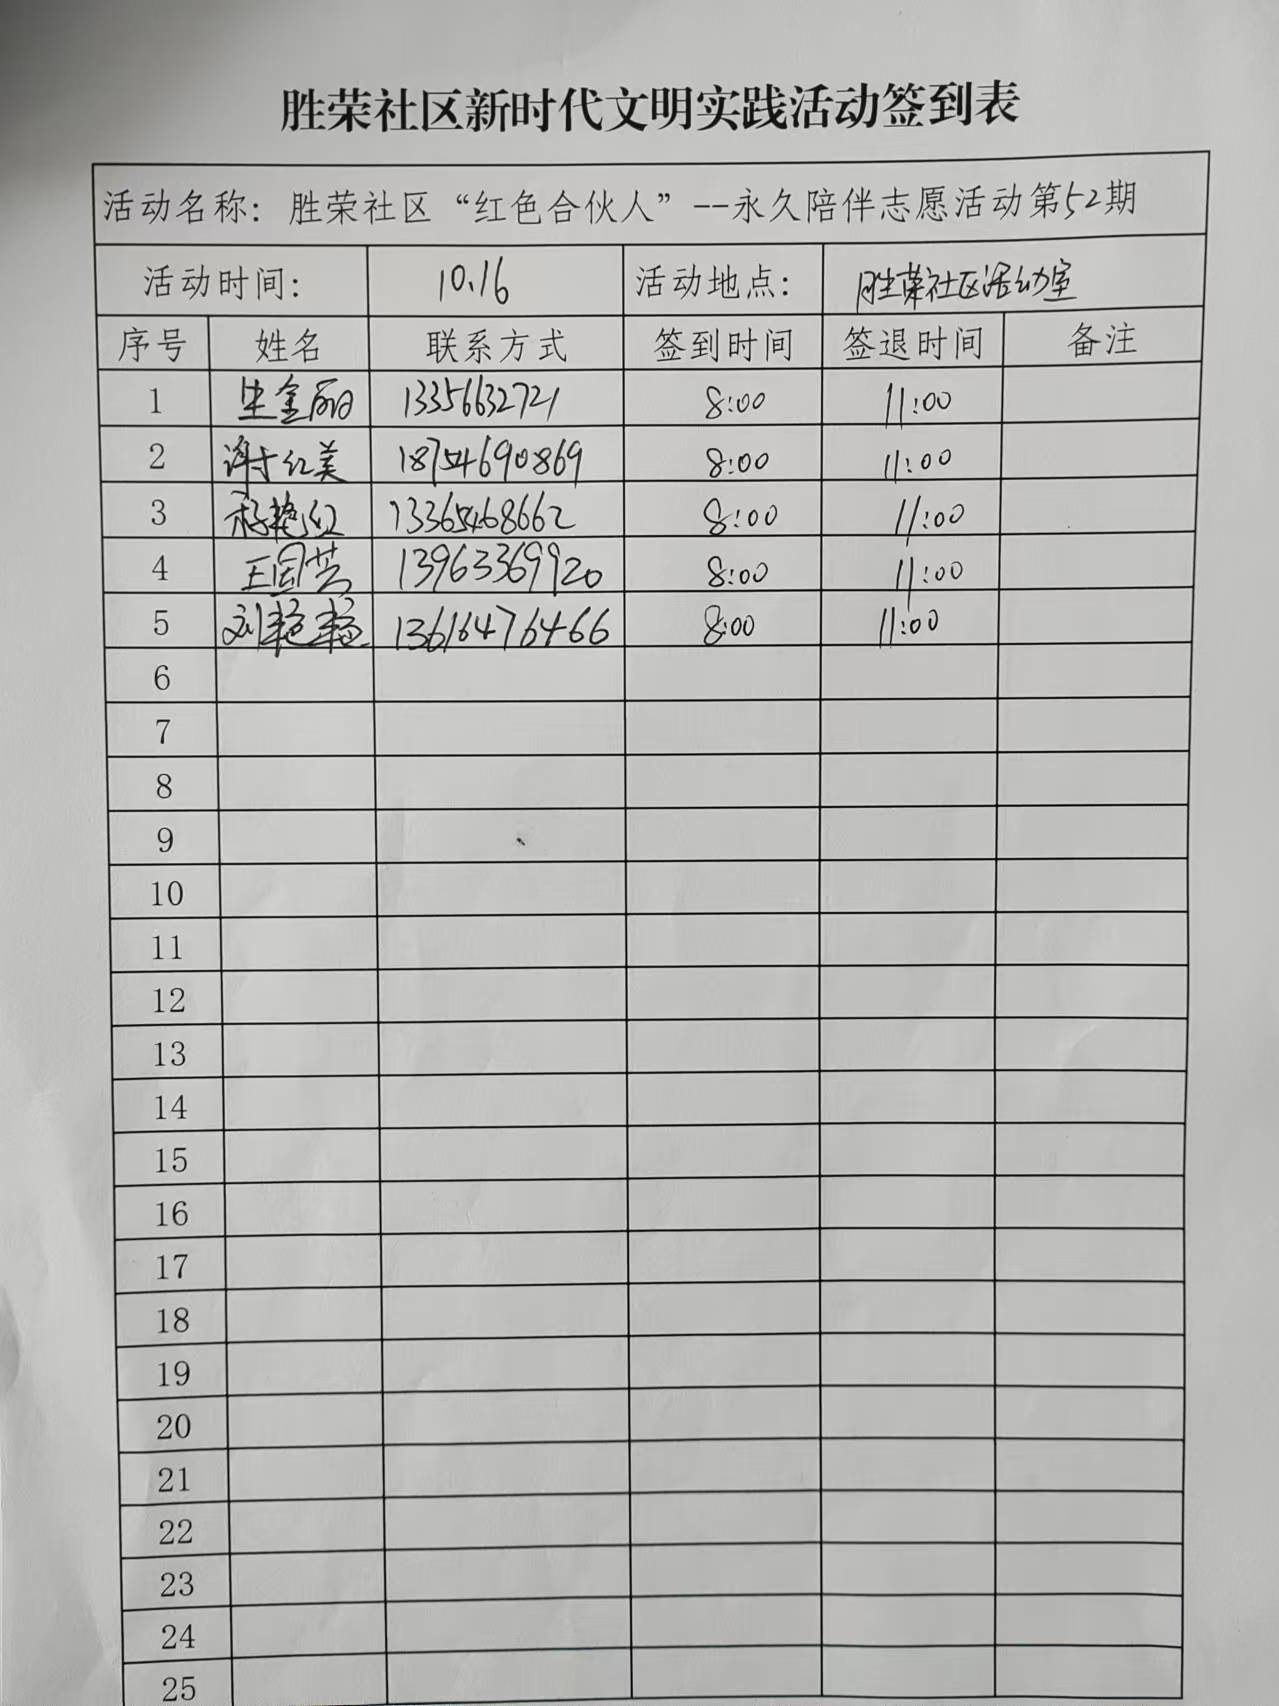 胜荣社区新时代文明实践活动签到表
活动名称：胜荣社区“红色合伙人”--永久陪伴志愿活动第52期
活动时间： 10.16 活动地点： 胜荣社区活动室
序号 姓名 联系方式 签到时间 签退时间 备注
1 生金丽 13356632721 8:00 11:00
2 谢红美 18754690869 8:00 11:00
3 艳红 13365468662 8:00 11:00
4 王国芸 13963369920 8:00 11:00
5 刘艳艳 13616476466 8:00 11:00
6
7
8
9
10
11
12
13
14
15
16
17
18
19
20
21
22
23
24
25